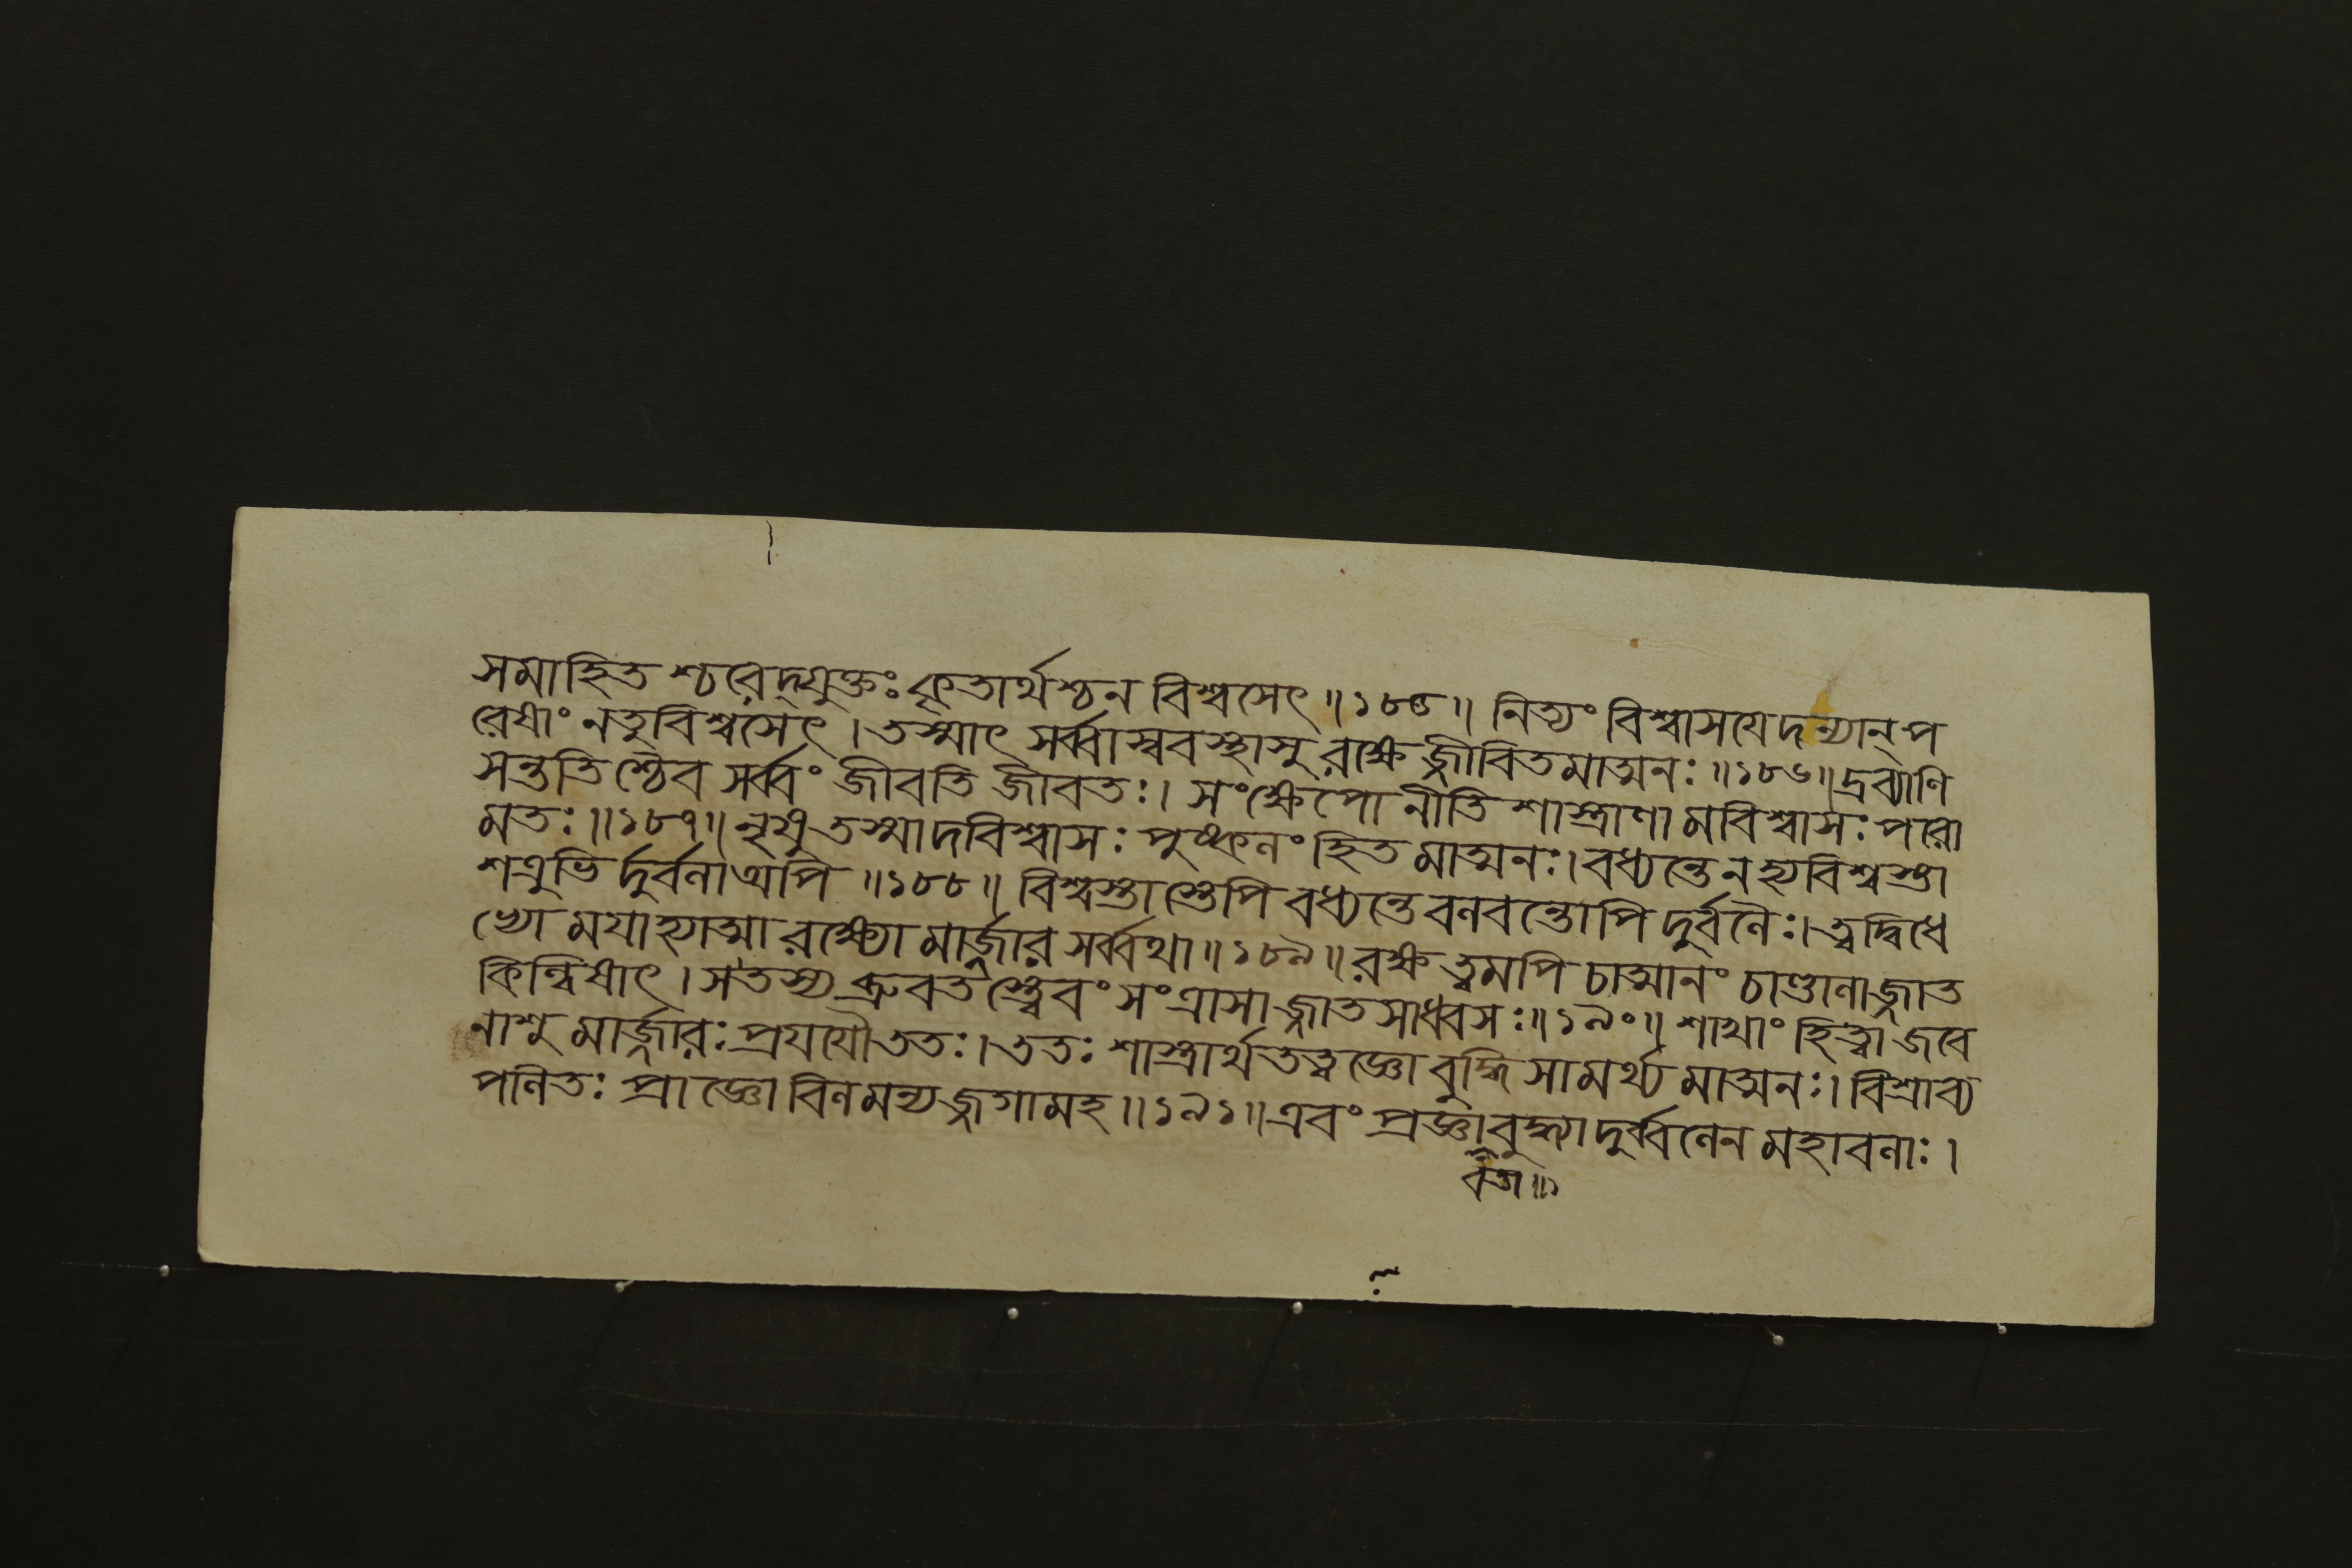 সমাহিতশ্চরেদ্যুক্তঃ কৃতার্থশ্চন বিশ্বসেৎ ॥১৮৫॥ নিত্যং বিশ্বাসয়েদন্যান্ প
রেষাং নতুবিশ্বসেৎ । তস্মাৎ সর্ব্বাস্ববস্থাসু রক্ষেজ্জীবিতমাত্মনঃ ॥১৮৬॥ দ্রব্যাণি
সন্ততিশ্চৈব সর্ব্বং জীবতি জীবতঃ। সংক্ষেপো নীতিশাস্ত্রাণামবিশ্বাসঃ পরো
মতঃ ॥১৮৭॥ নৃষু তস্মাদবিশ্বাসঃ পুষ্কলং হিতমাত্মনঃ। বধ্যন্তে নহ্যবিশ্বস্তা
শত্রুভির্দুর্বলাঅপি ॥১৮৮॥ বিশ্বস্তাস্তেপি বধ্যন্তে বলবন্তোপি দুর্বলৈঃ। ত্বদ্বিধে
ভ্যো ময়াহ্যাত্মা রক্ষ্যো মার্জ্জার সর্ব্বথা ॥১৮৯॥ রক্ষ ত্বমপি চাত্মানং চাণ্ডালাজ্জাত
কিল্বিষাৎ । স তস্য ব্রুবতস্ত্বেবং সংত্রাসাজ্জাতসাধ্বসঃ ॥১৯০॥ শাখাং হিত্বা জবে
নাশু মার্জ্জারঃ প্রযযৌ ততঃ। ততঃ শাস্ত্রার্থতত্ত্বজ্ঞো বুদ্ধিসামর্থ্যমাত্মনঃ। বিশ্রাব্য
পলিতঃ প্রাজ্ঞো বিলমন্যজ্জগামহ ॥১৯১॥ এবং প্রজ্ঞাবুদ্ধ্যা দুর্ব্বলেন মহাবলাঃ ।
বতা ॥১